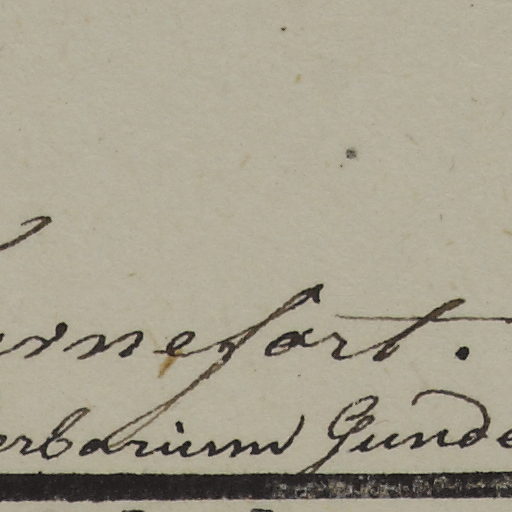 urnefort.
erbarium Gunde